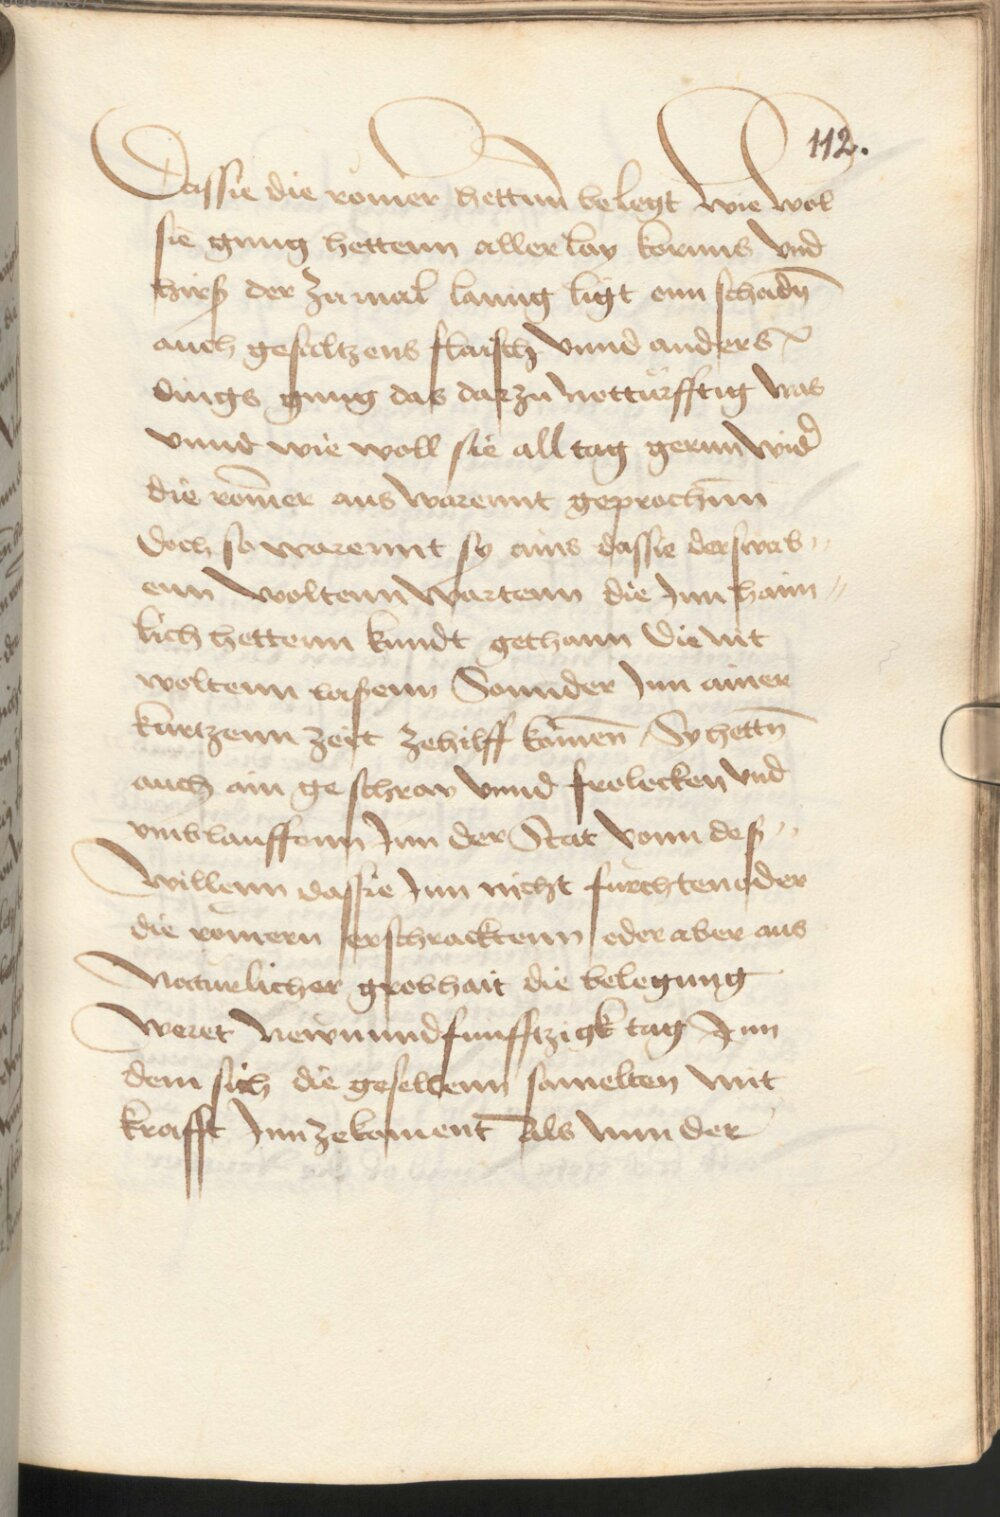 112.
Dassie die romer hettnn belegt wie wol
sie gnug hettenn allerlay kornns vnd
hirß der zu mal lanng ligt onn schadn
auch gesaltzens flaisch vnnd anders
dings gnug das darzu notturfftig was
vnnd wie woll sie all tag gernn wid
die romer aus warennt geprochnn
doch so warennt sy ains dassie der swab
enn woltenn wartenn die Inn haim
lich hettenn kundt gethann die nit
woltenn laßenn Sonnder Inn ainer
kurtzenn zeit zehilff komen Sy hettn
auch ain geschray vnnd frolecken vnd
vmblauffenn Inn der Stat vonn deß
willenn dassie Inn nicht furchten oder
die romern erschracktenn oder aber aus
naturlicher grobhait die belegung
weret newnundfunfftzigk tag Inn
dem sich die gesellenn samelten mit
krafft Inn zekoment Als nun der